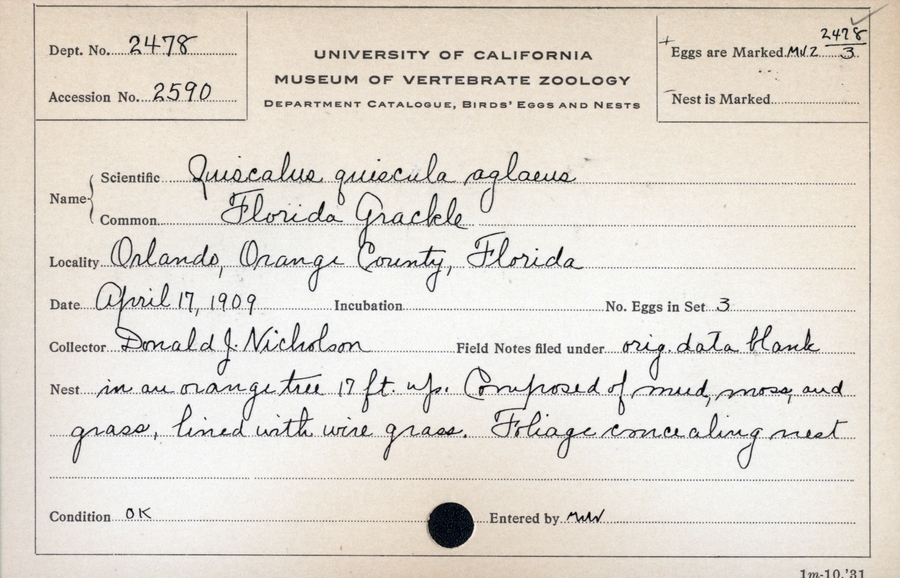 Dept. No. 2478
Accession No. 2590
UNIVERSITY OF CALIFORNIA
MUSEUM OF VERTEBRATE ZOOLOGY
DEPARTMENT CATALOGUE, BIRDS' EGGS AND NESTS
Eggs are Marked MVZ 2478/3
Nest is Marked
Name
Scientific Quiscalus quiscula aglaeus
Common Florida Grackle
Locality Orlando, Orange County, Florida
Date April 17, 1909 Incubation No. Eggs in Set 3
Collector Donald J. Nicholson Field Notes filed under orig. data blank
Nest in an orange tree 17 ft. up. Composed of mud, moss, and
grass, lined with wire grass. Foliage concealing nest
Condition OK Entered by
1m-10,'31